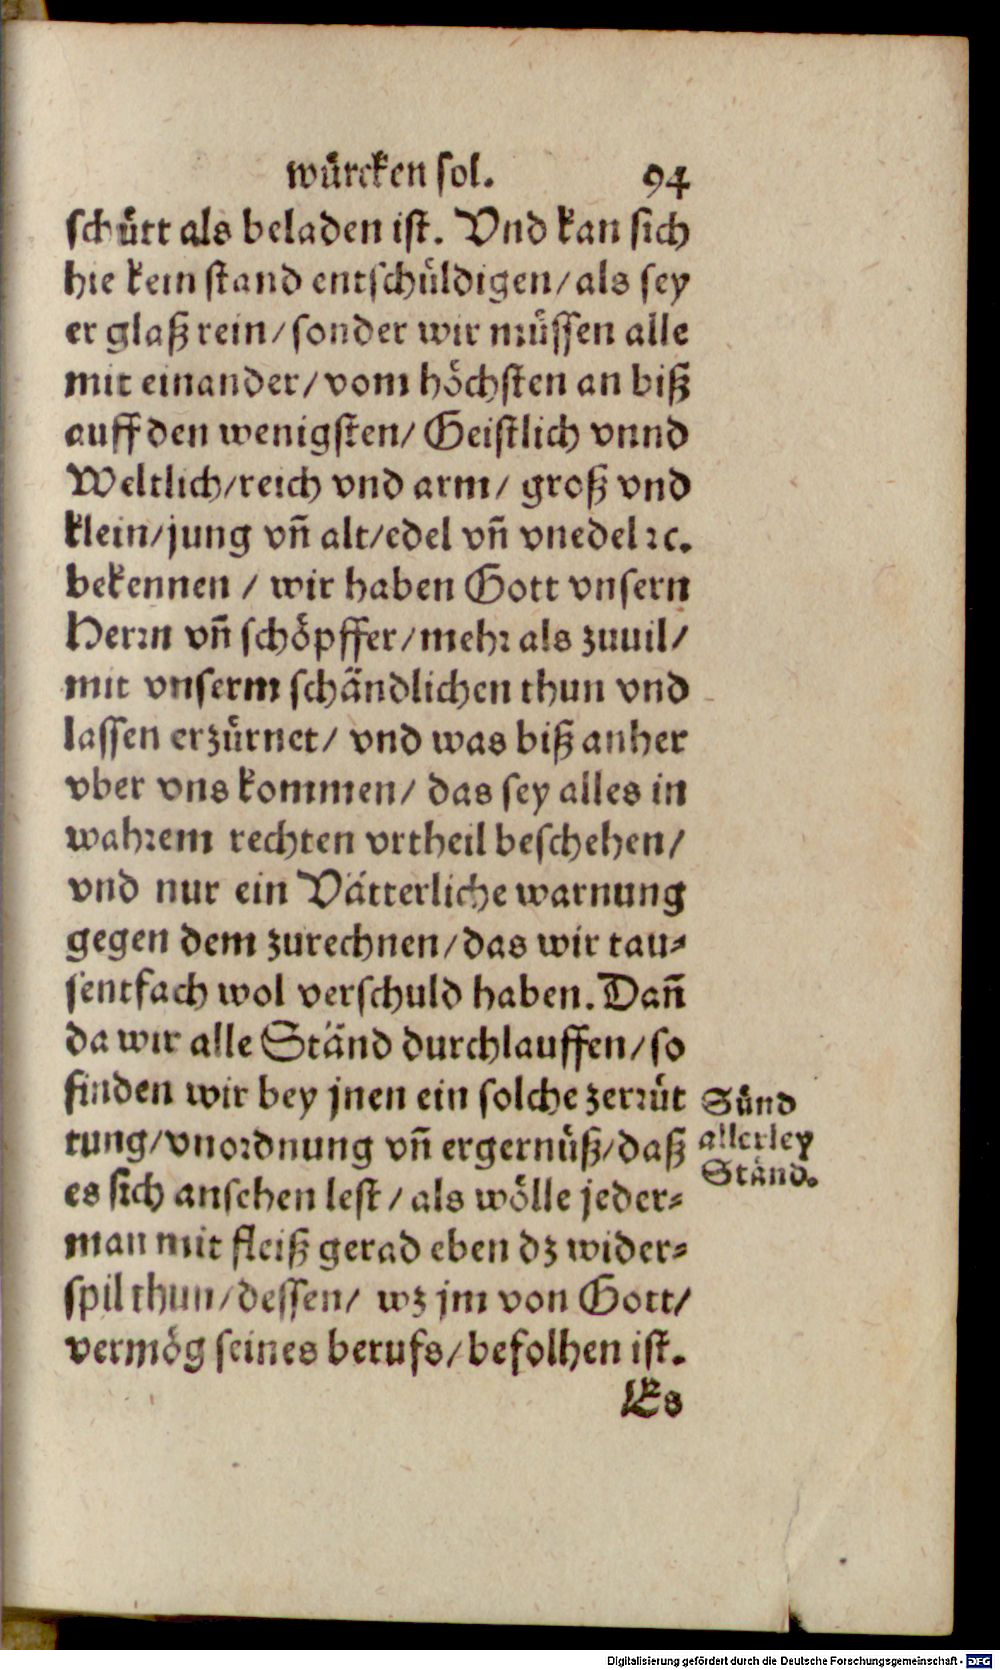 würcken sol. 94
schütt als beladen ist. Vnd kan sich
hie kein stand entschüldigen/ als sey
er glaß rein/ sonder wir müssen alle
mit einander/ vom höchsten an biß
auff den wenigsten/ Geistlich vnnd
Weltlich/ reich vnd arm/ groß vnd
klein/ jung vñ alt/ edel vñ vnedel ꝛc.
bekennen / wir haben Gott vnsern
Herꝛn vñ schöpffer/ mehꝛ als zuuil/
mit vnserm schändlichen thun vnd
lassen erzürnet/ vnd was biß anher
vber vns kommen/ das sey alles in
wahꝛem rechten vrtheil beschehen/
vnd nur ein Vätterliche warnung
gegen dem zurechnen/ das wir tau⸗
sentfach wol verschuld haben. Dañ
da wir alle Ständ durchlauffen/ so
finden wir bey jnen ein solche zerꝛüt
tung/ vnoꝛdnung vñ ergernüß/ daß
es sich ansehen lest/ als wölle jeder⸗
man mit fleiß gerad eben dz wider⸗
spil thun/ dessen/ wz jm von Gott/
vermög seines berufs/ befolhen ist.
Es
Sünd
allerley
Ständ.
Digitalisierung gefördert durch die Deutsche Forschungsgemeinschaft - DFG